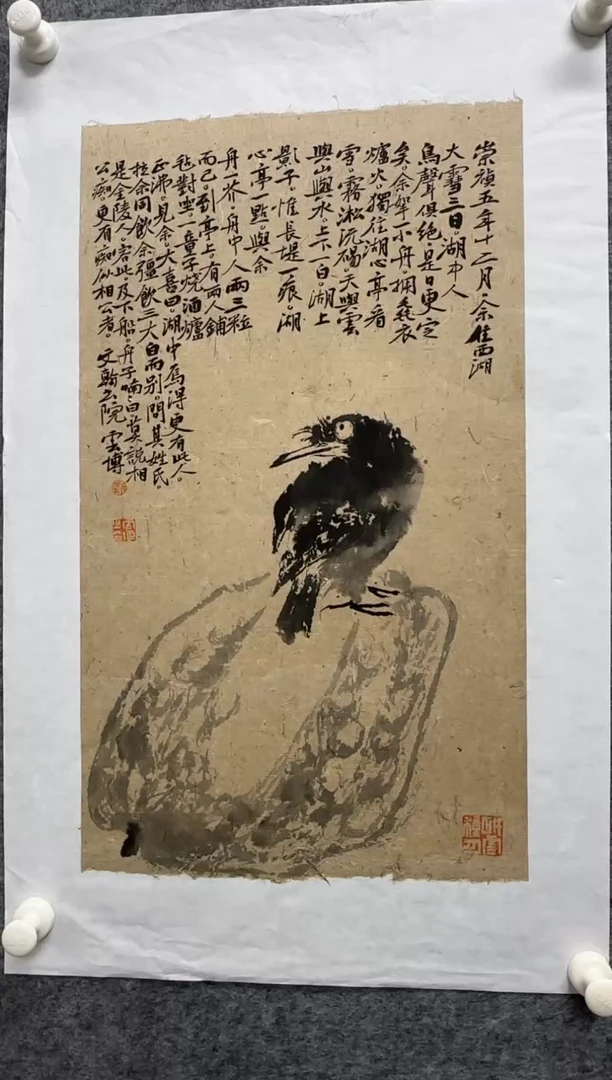 崇禎五年十二月。余住西湖
大雪三日。湖中人
鳥聲俱絕。是日更定
矣。余拏一小舟。擁毳衣
爐火。獨往湖心亭看
雪。霧淞沆碭。天與雲
與山與水。上下一白。湖上
影子。惟長堤一痕。湖
心亭一點。與余
舟一芥。舟中人兩三粒
而已。到亭上。有兩人鋪
氈對坐。一童子燒酒爐
正沸。見余大喜曰。湖中焉得更有此人。
拉余同飲。余彊飲三大白而別。問其姓氏。
是金陵人。客此。及下船。舟子喃曰。莫說相
公癡。更有癡似相公者。文翰書院 雲博